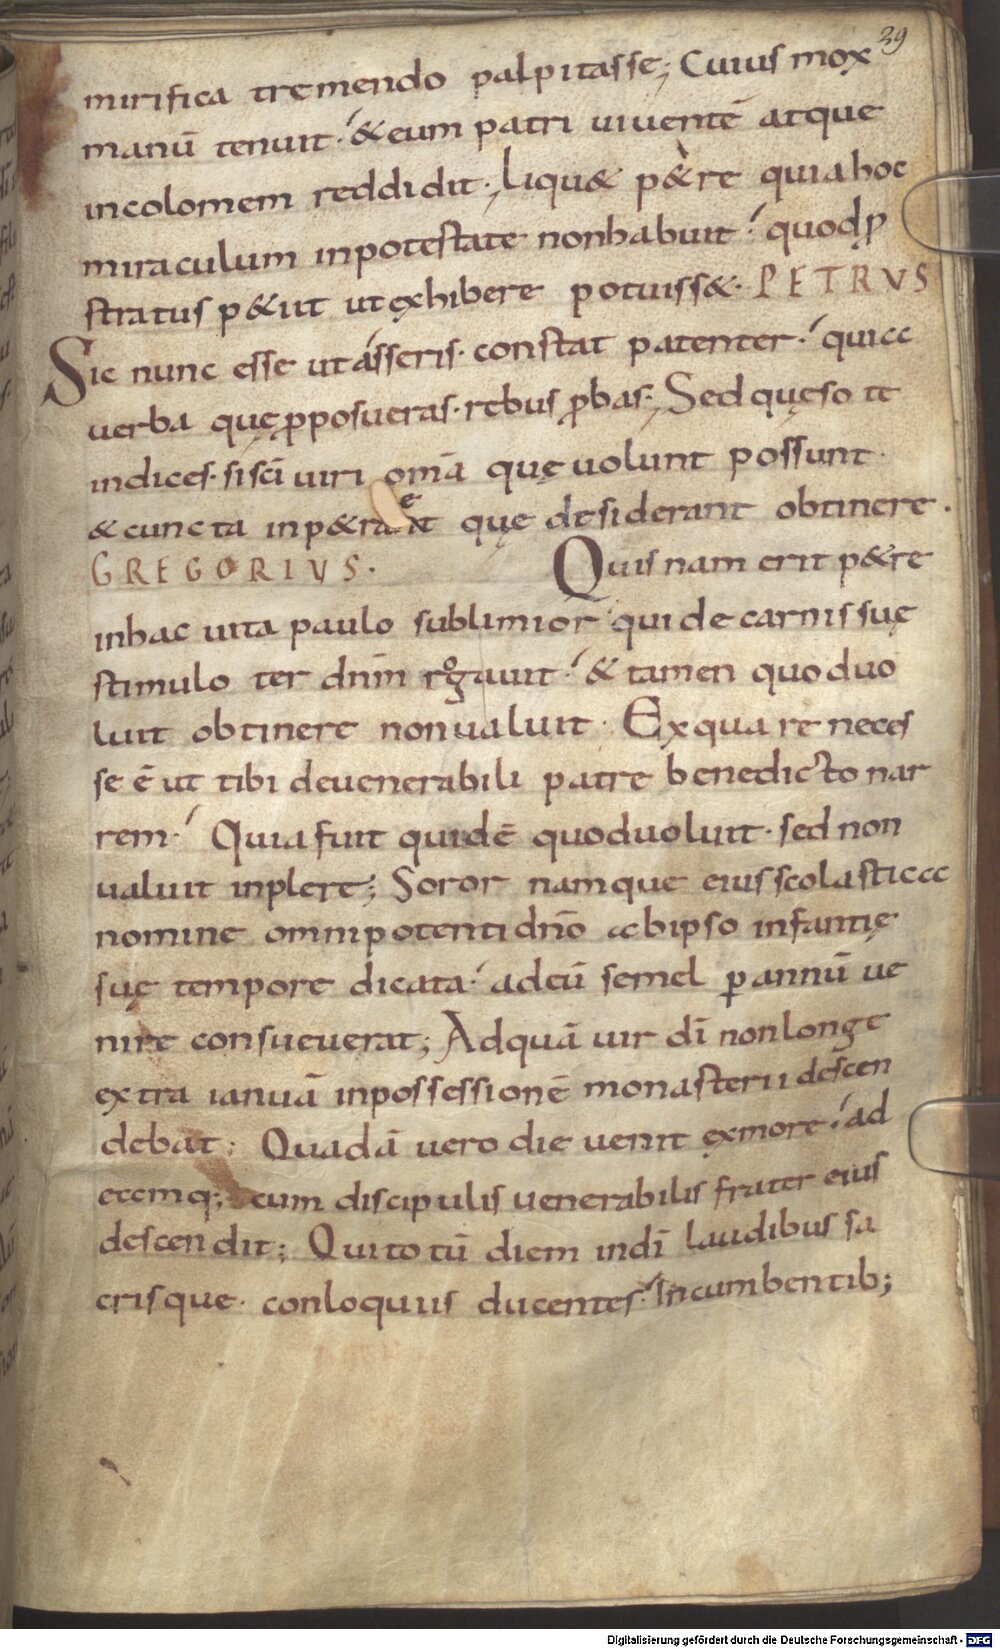 29
mirifica tremendo palpitasse; Cuius mox
manū tenuit. &eum patri uiuentē atque
incolomem reddidit. Liqu& p&re quia hoc
miraculum inpotestate nonhabuit. quod ꝓ
stratus p&iit ut exhibere potuiss&. PETRUS
Sic nunc esse ut asseris. constat patenter. quia
uerba quę ꝓposueras. rebus ꝓbas; Sed quęso te
indices. si sc̄i uiri om̄a quę uolunt possunt.
& cuncta inp&rant quę desiderant obtinere.
GREGORIUS. Quis nam erit p&re
inhac uita paulo sublimior qui de carnis suę
stimulo ter dnm̄ rogauit. & tamen quod uo
luit obtinere non ualuit. Ex qua re neces
se ē ut tibi de uenerabili patre benedicto nar
rem. Quia fuit quidē quod uoluit. sed non
ualuit inplere; Soror namque eius scolastica
nomine omnipotenti dn̄o ab ipso infantię
suę tempore dicata. ad eū semel ꝑ annū ue
nire consueuerat; Ad quā uir dī non longe
extra ianuā inpossessionē monasterii descen
debat; Quadā uero die uenit ęxmore. ad
eamq; cum discipulis uenerabilis frater eius
descendit; Qui totū diem indī laudibus sa
crisque. conloquiis ducentes. Incumbentib;
Digitalisierung gefördert durch die Deutsche Forschungsgemeinschaft - DFG